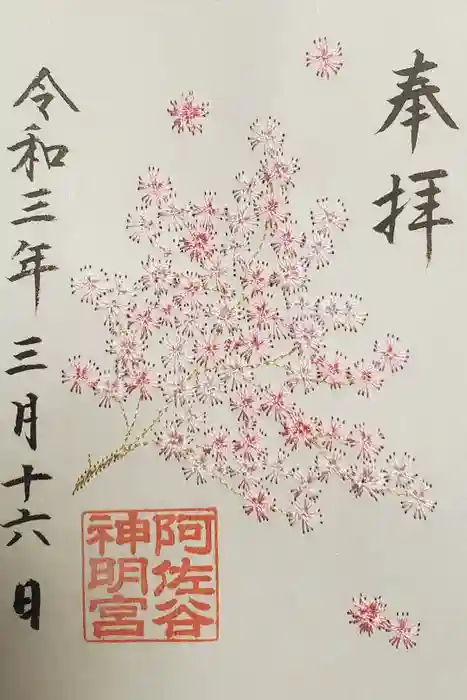 奉拝
阿佐谷
神明宮
令和三年 三月十六日